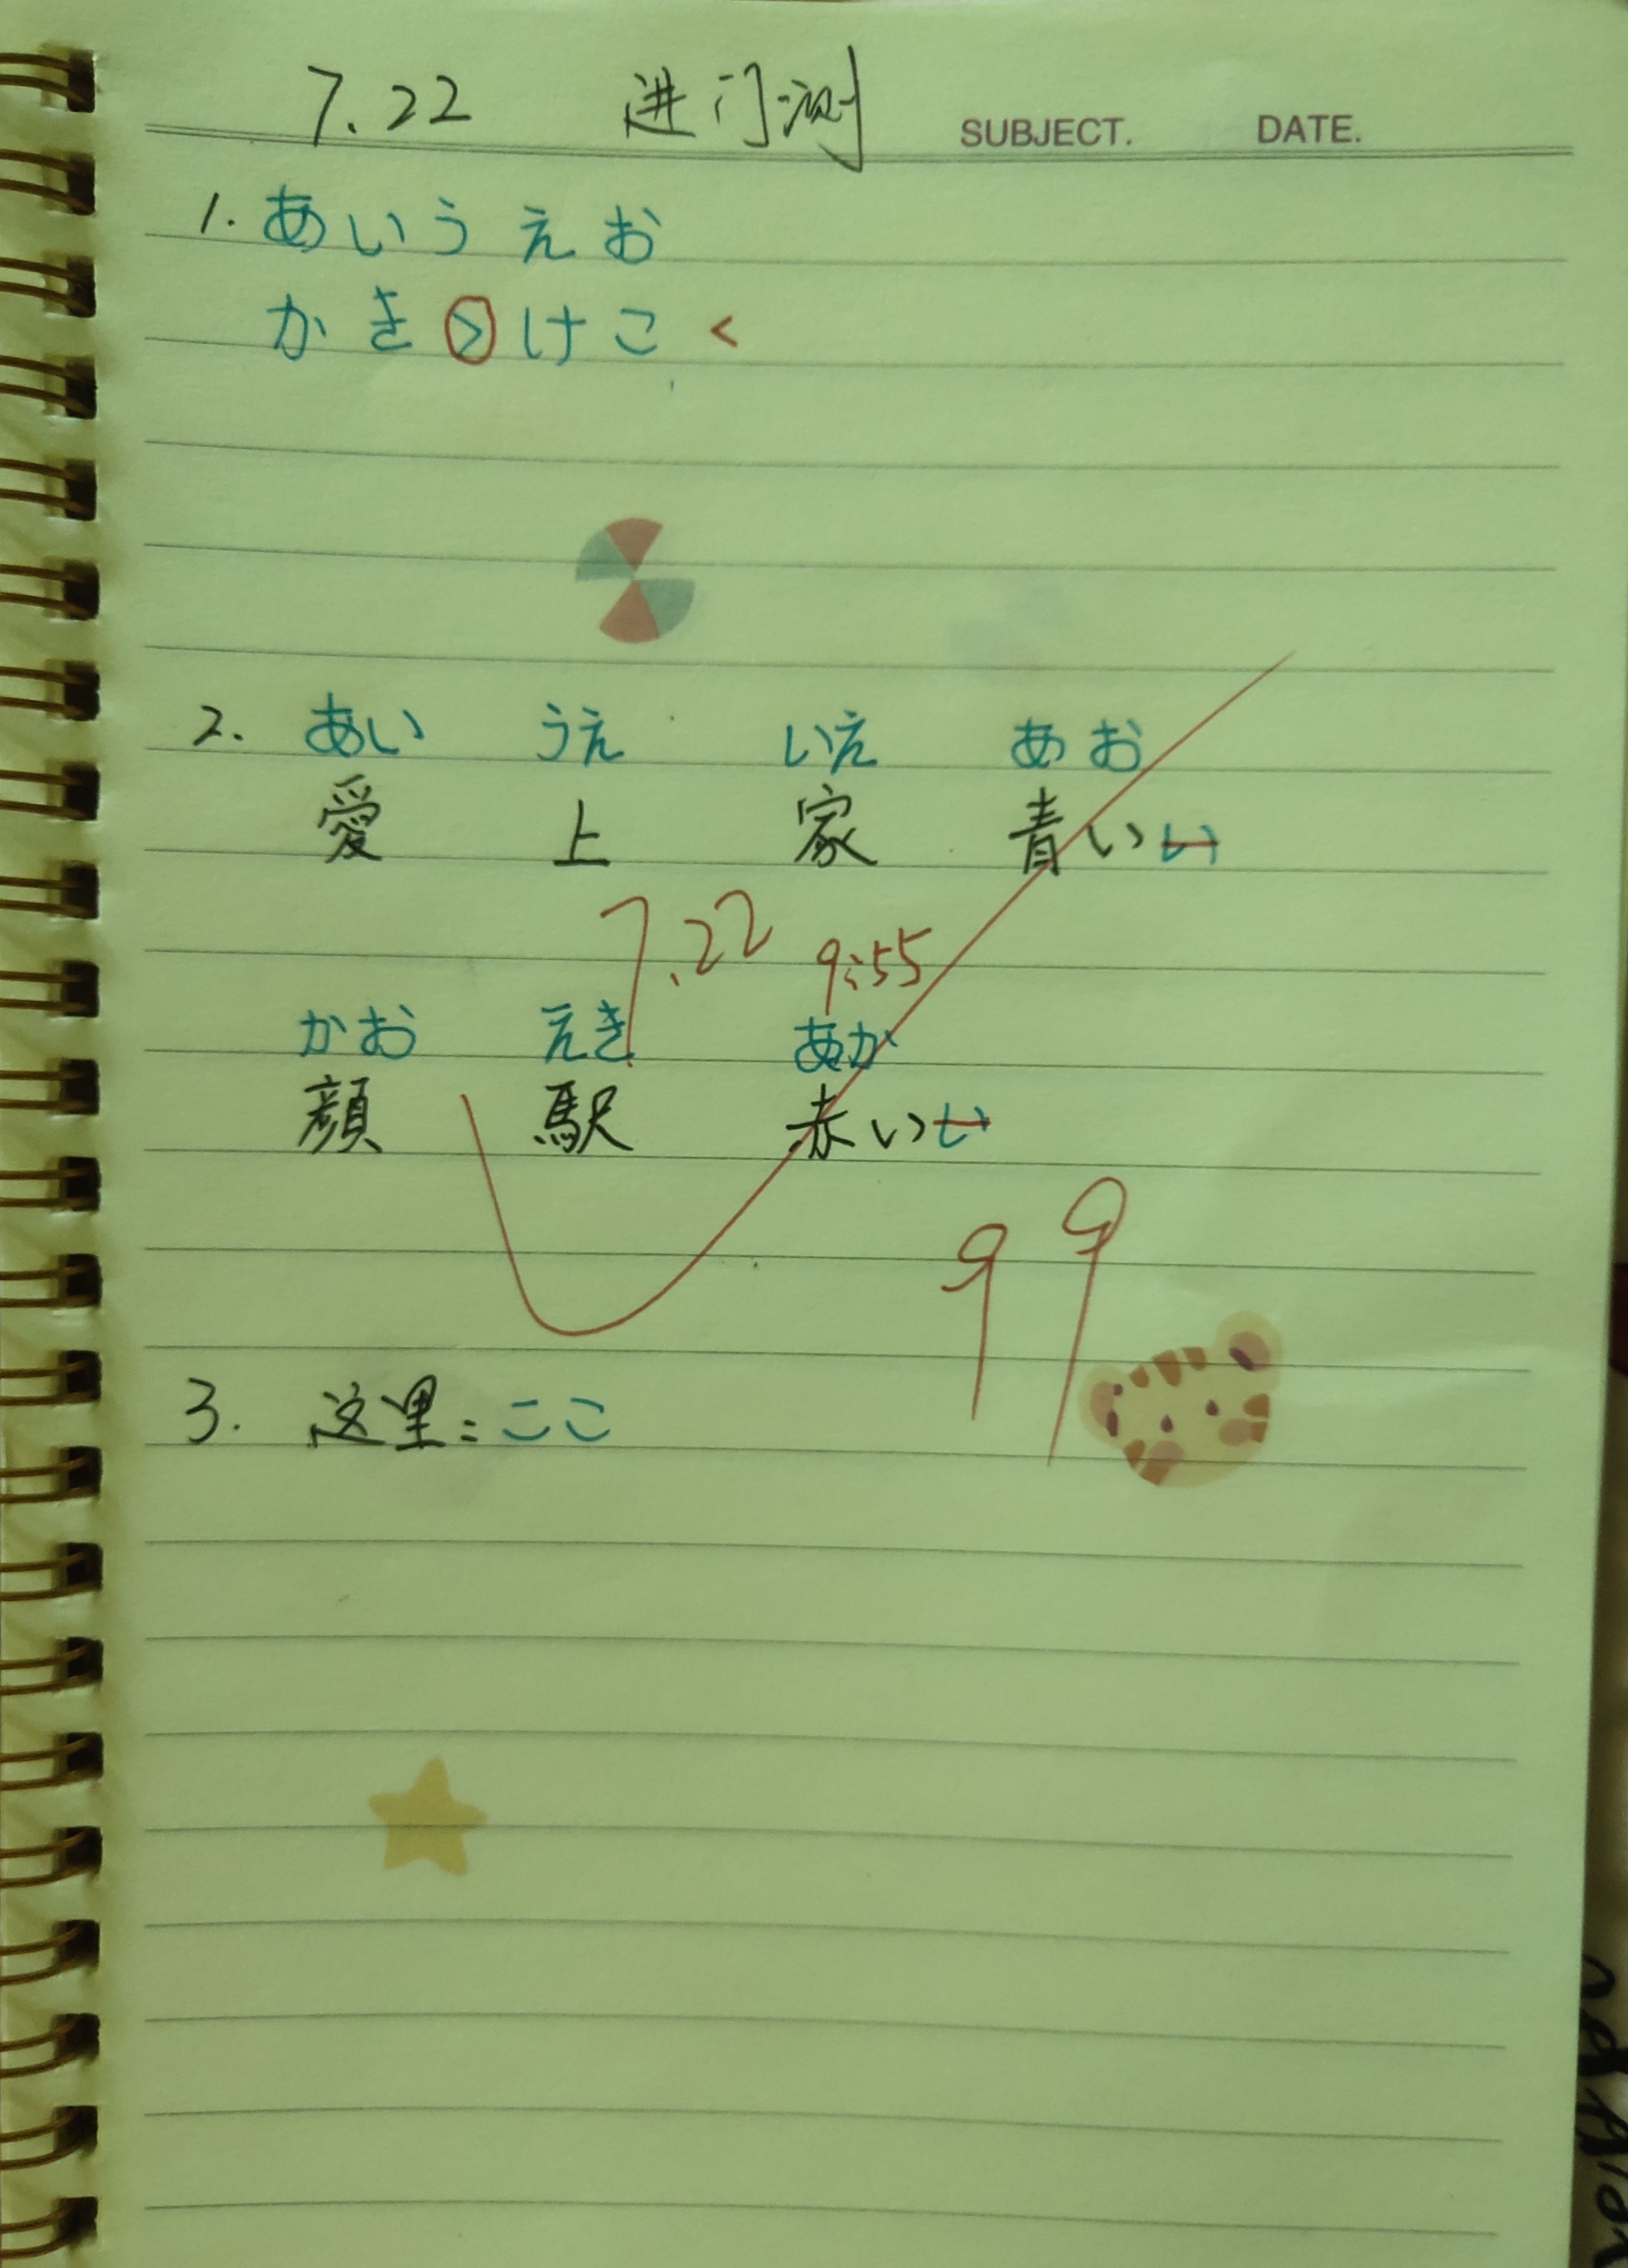 7.22 进门测 SUBJECT. DATE.
1. あいうえお
かき>けこ く
2. あい うえ いえ あお
愛 上 家 青いい
7.22 9:55
かお えき あか
顔 駅 赤いい
99
3. 这里：ここ